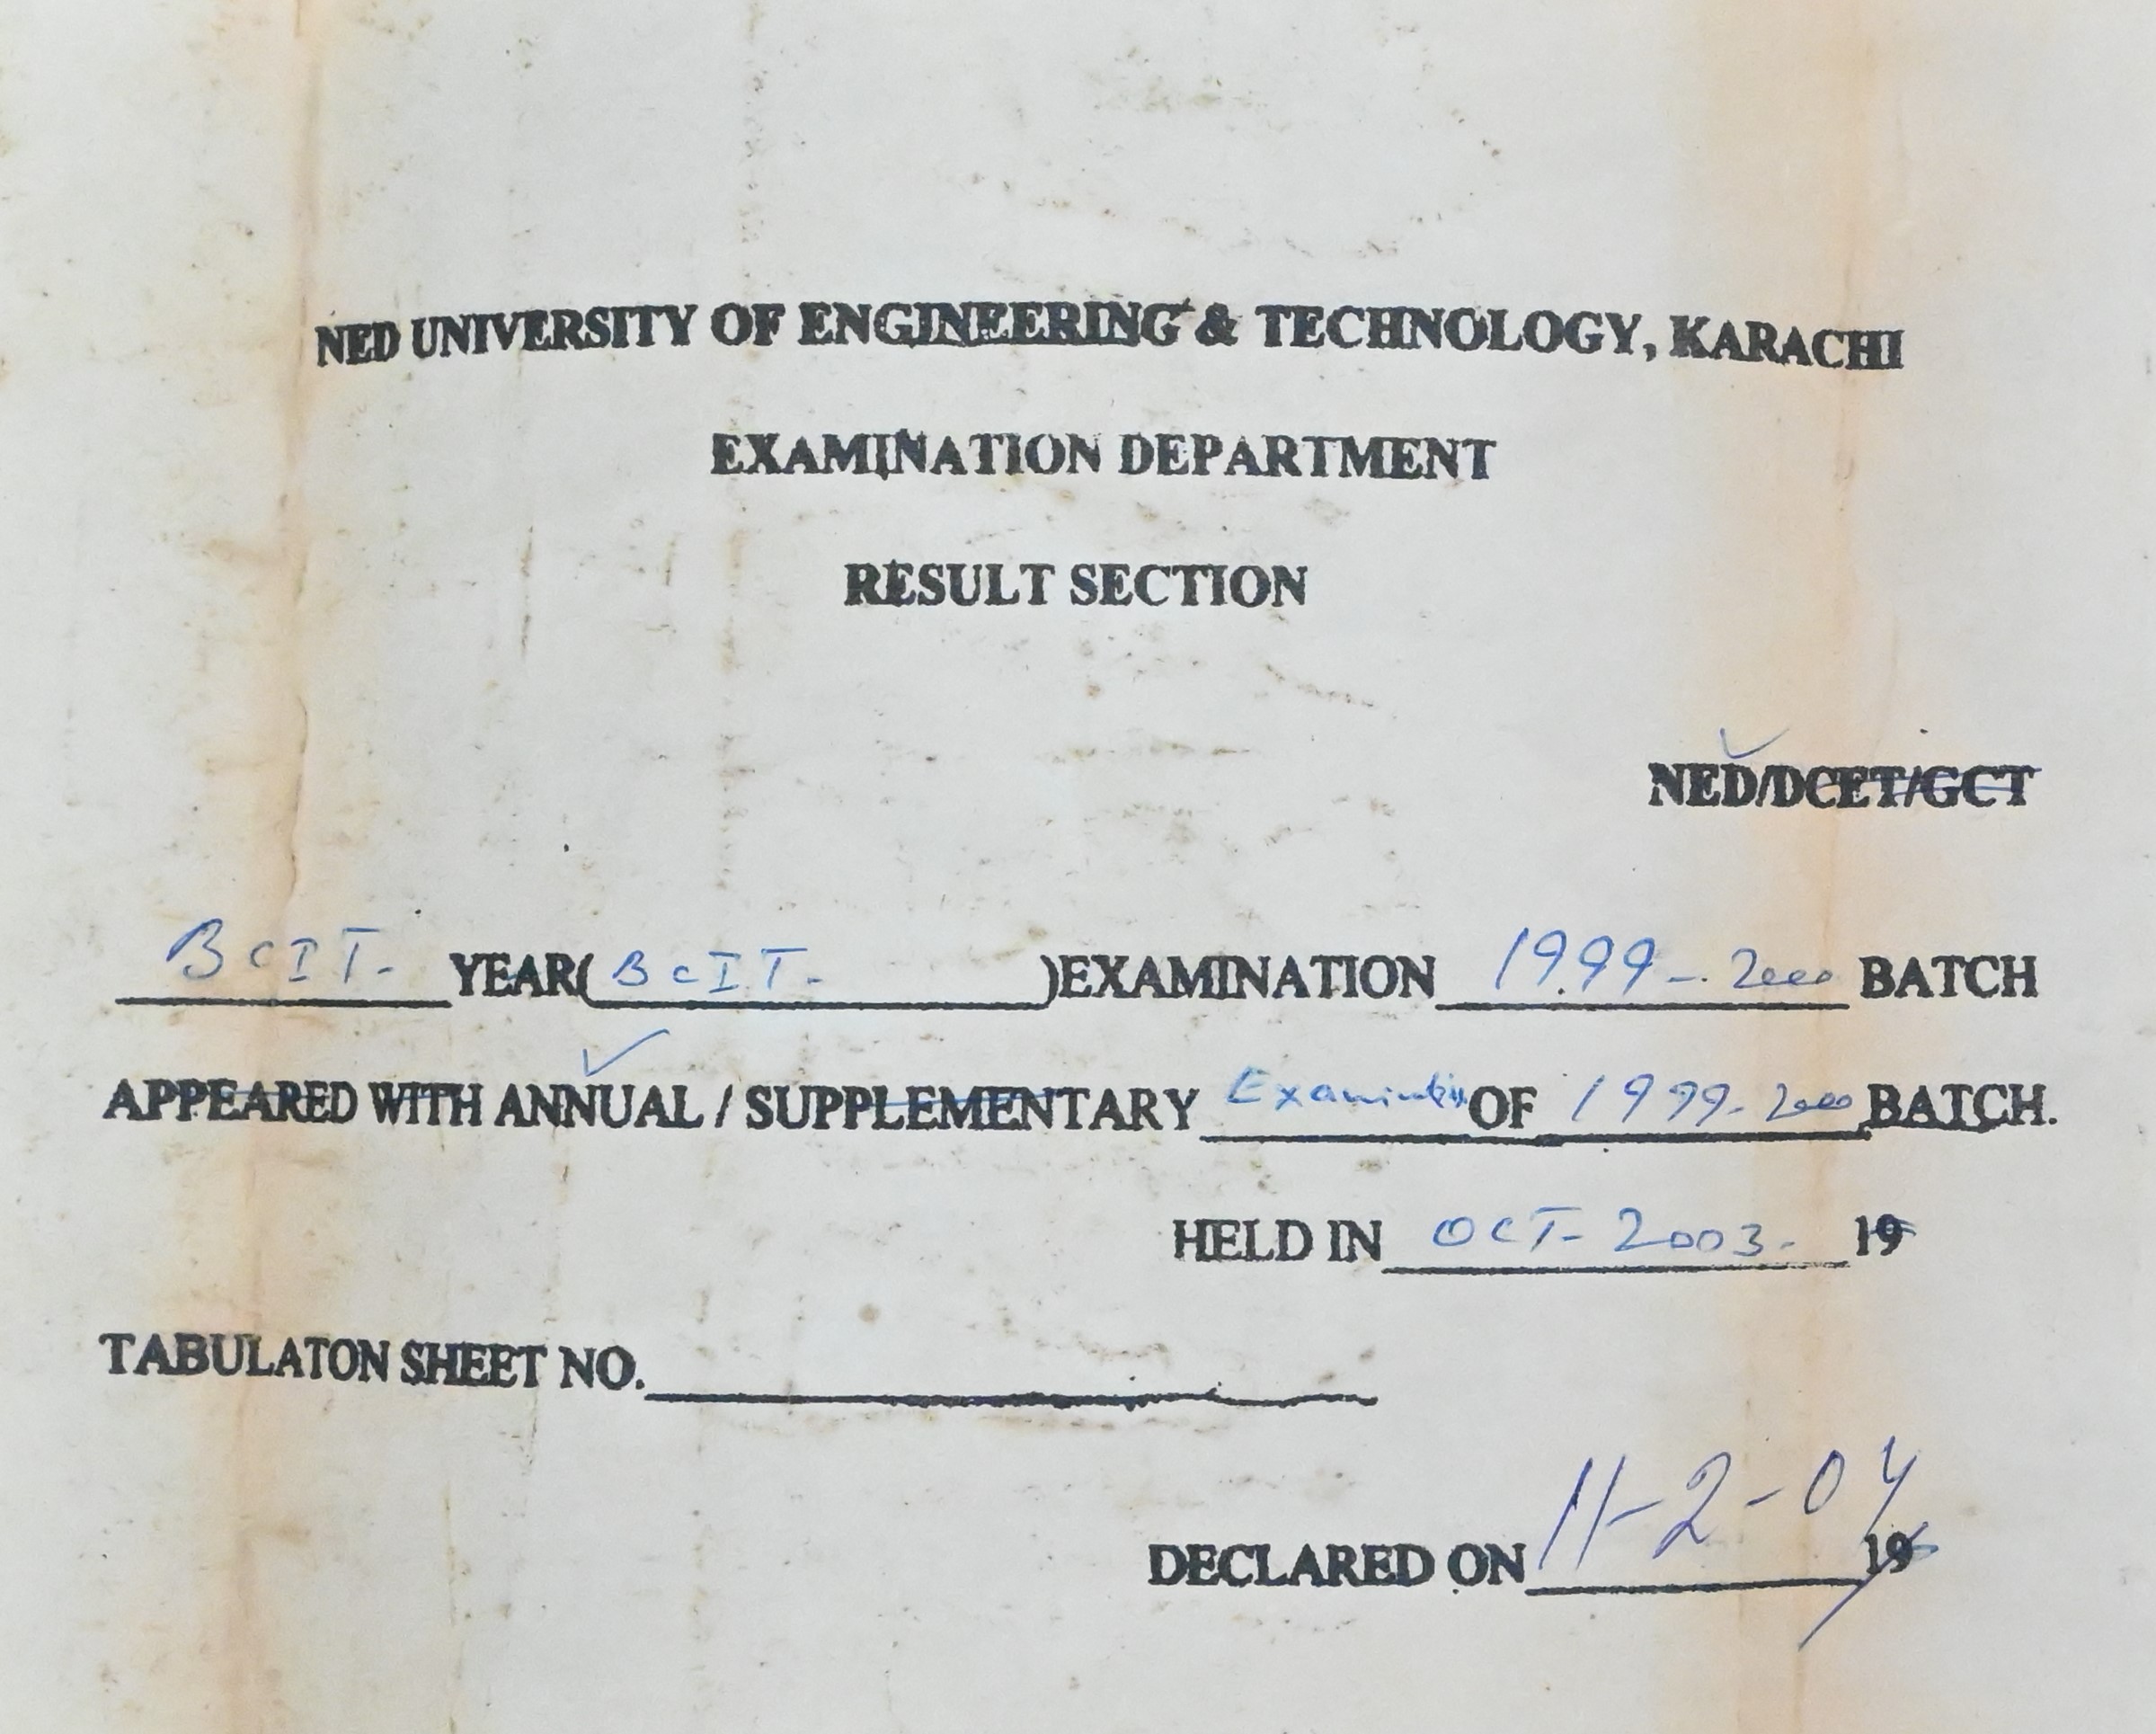 NED UNIVERSITY OF ENGINEERING & TECHNOLOGY, KARACHI
EXAMINATION DEPARTMENT
RESULT SECTION
NED/DCET/GCT
BCIT. YEAR( BCIT. )EXAMINATION 1999-2000 BATCH
APPEARED WITH ANNUAL / SUPPLEMENTARY Examination OF 1999-2000 BATCH.
HELD IN OCT-2003. 19
TABULATON SHEET NO.
DECLARED ON 11-2-04 19